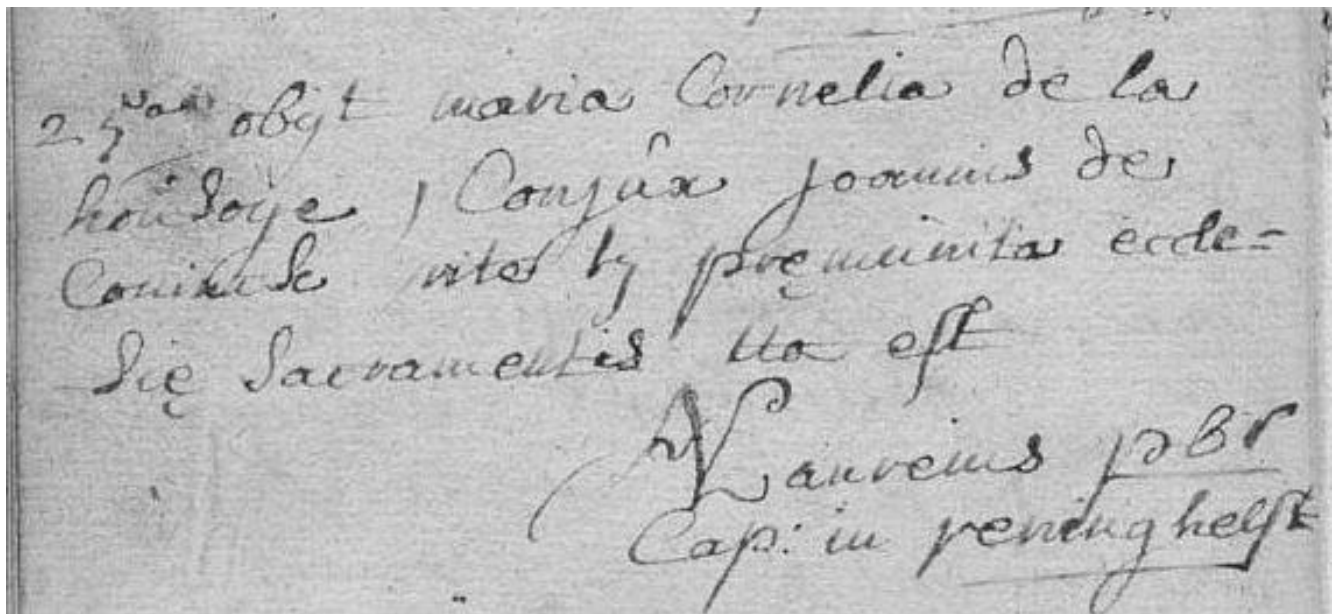 25ta obijt maria Cornelia de la
houssoye, Conjûx joannis de
Coninck rite hij pręmunita eccle=
się Sacramentis ita est
Laureins pbr
Cap: in reninghelst